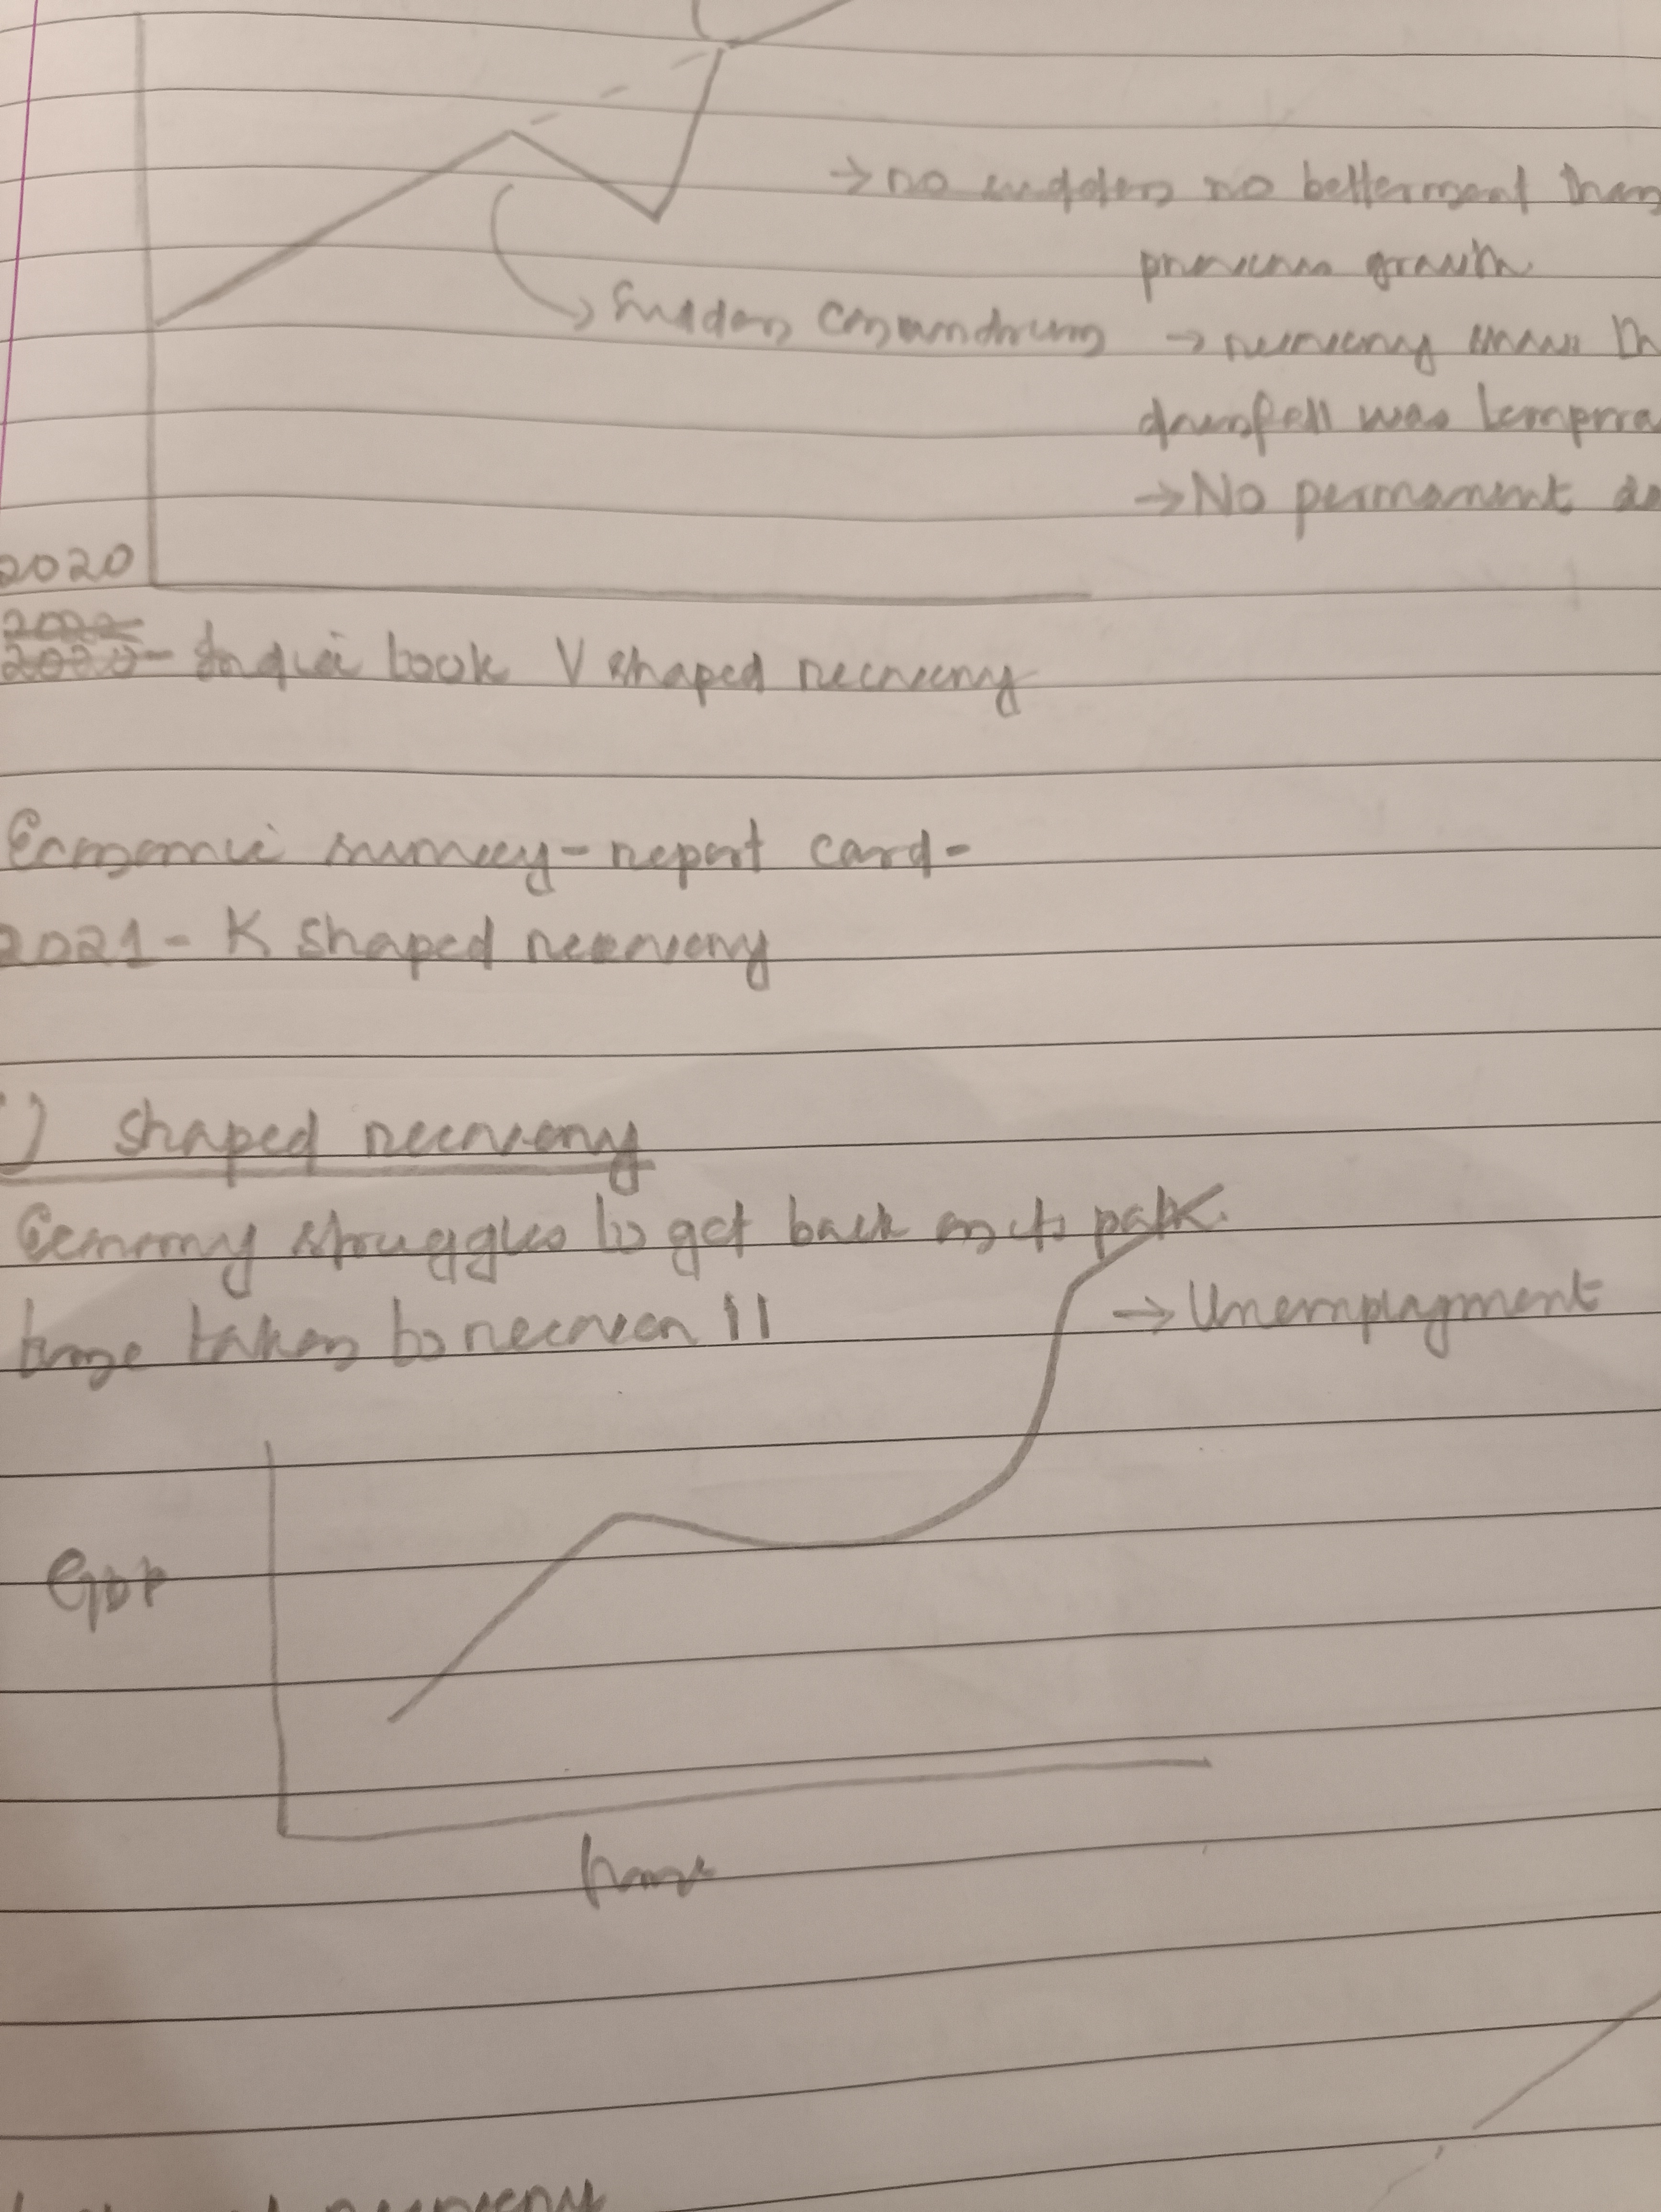 → no sudden no betterment than
previous growth
→ Sudden conundrum
→ recovery shows th
downfall was tempora
→ No permanent da
2020
2022
2020- book V shaped recovery
Economic survey - report card -
2021 - K shaped recovery
U shaped recovery
Economy struggles to get back on its path.
time taken to recover 11
→ Unemployment
GDP
time
shaped recovery